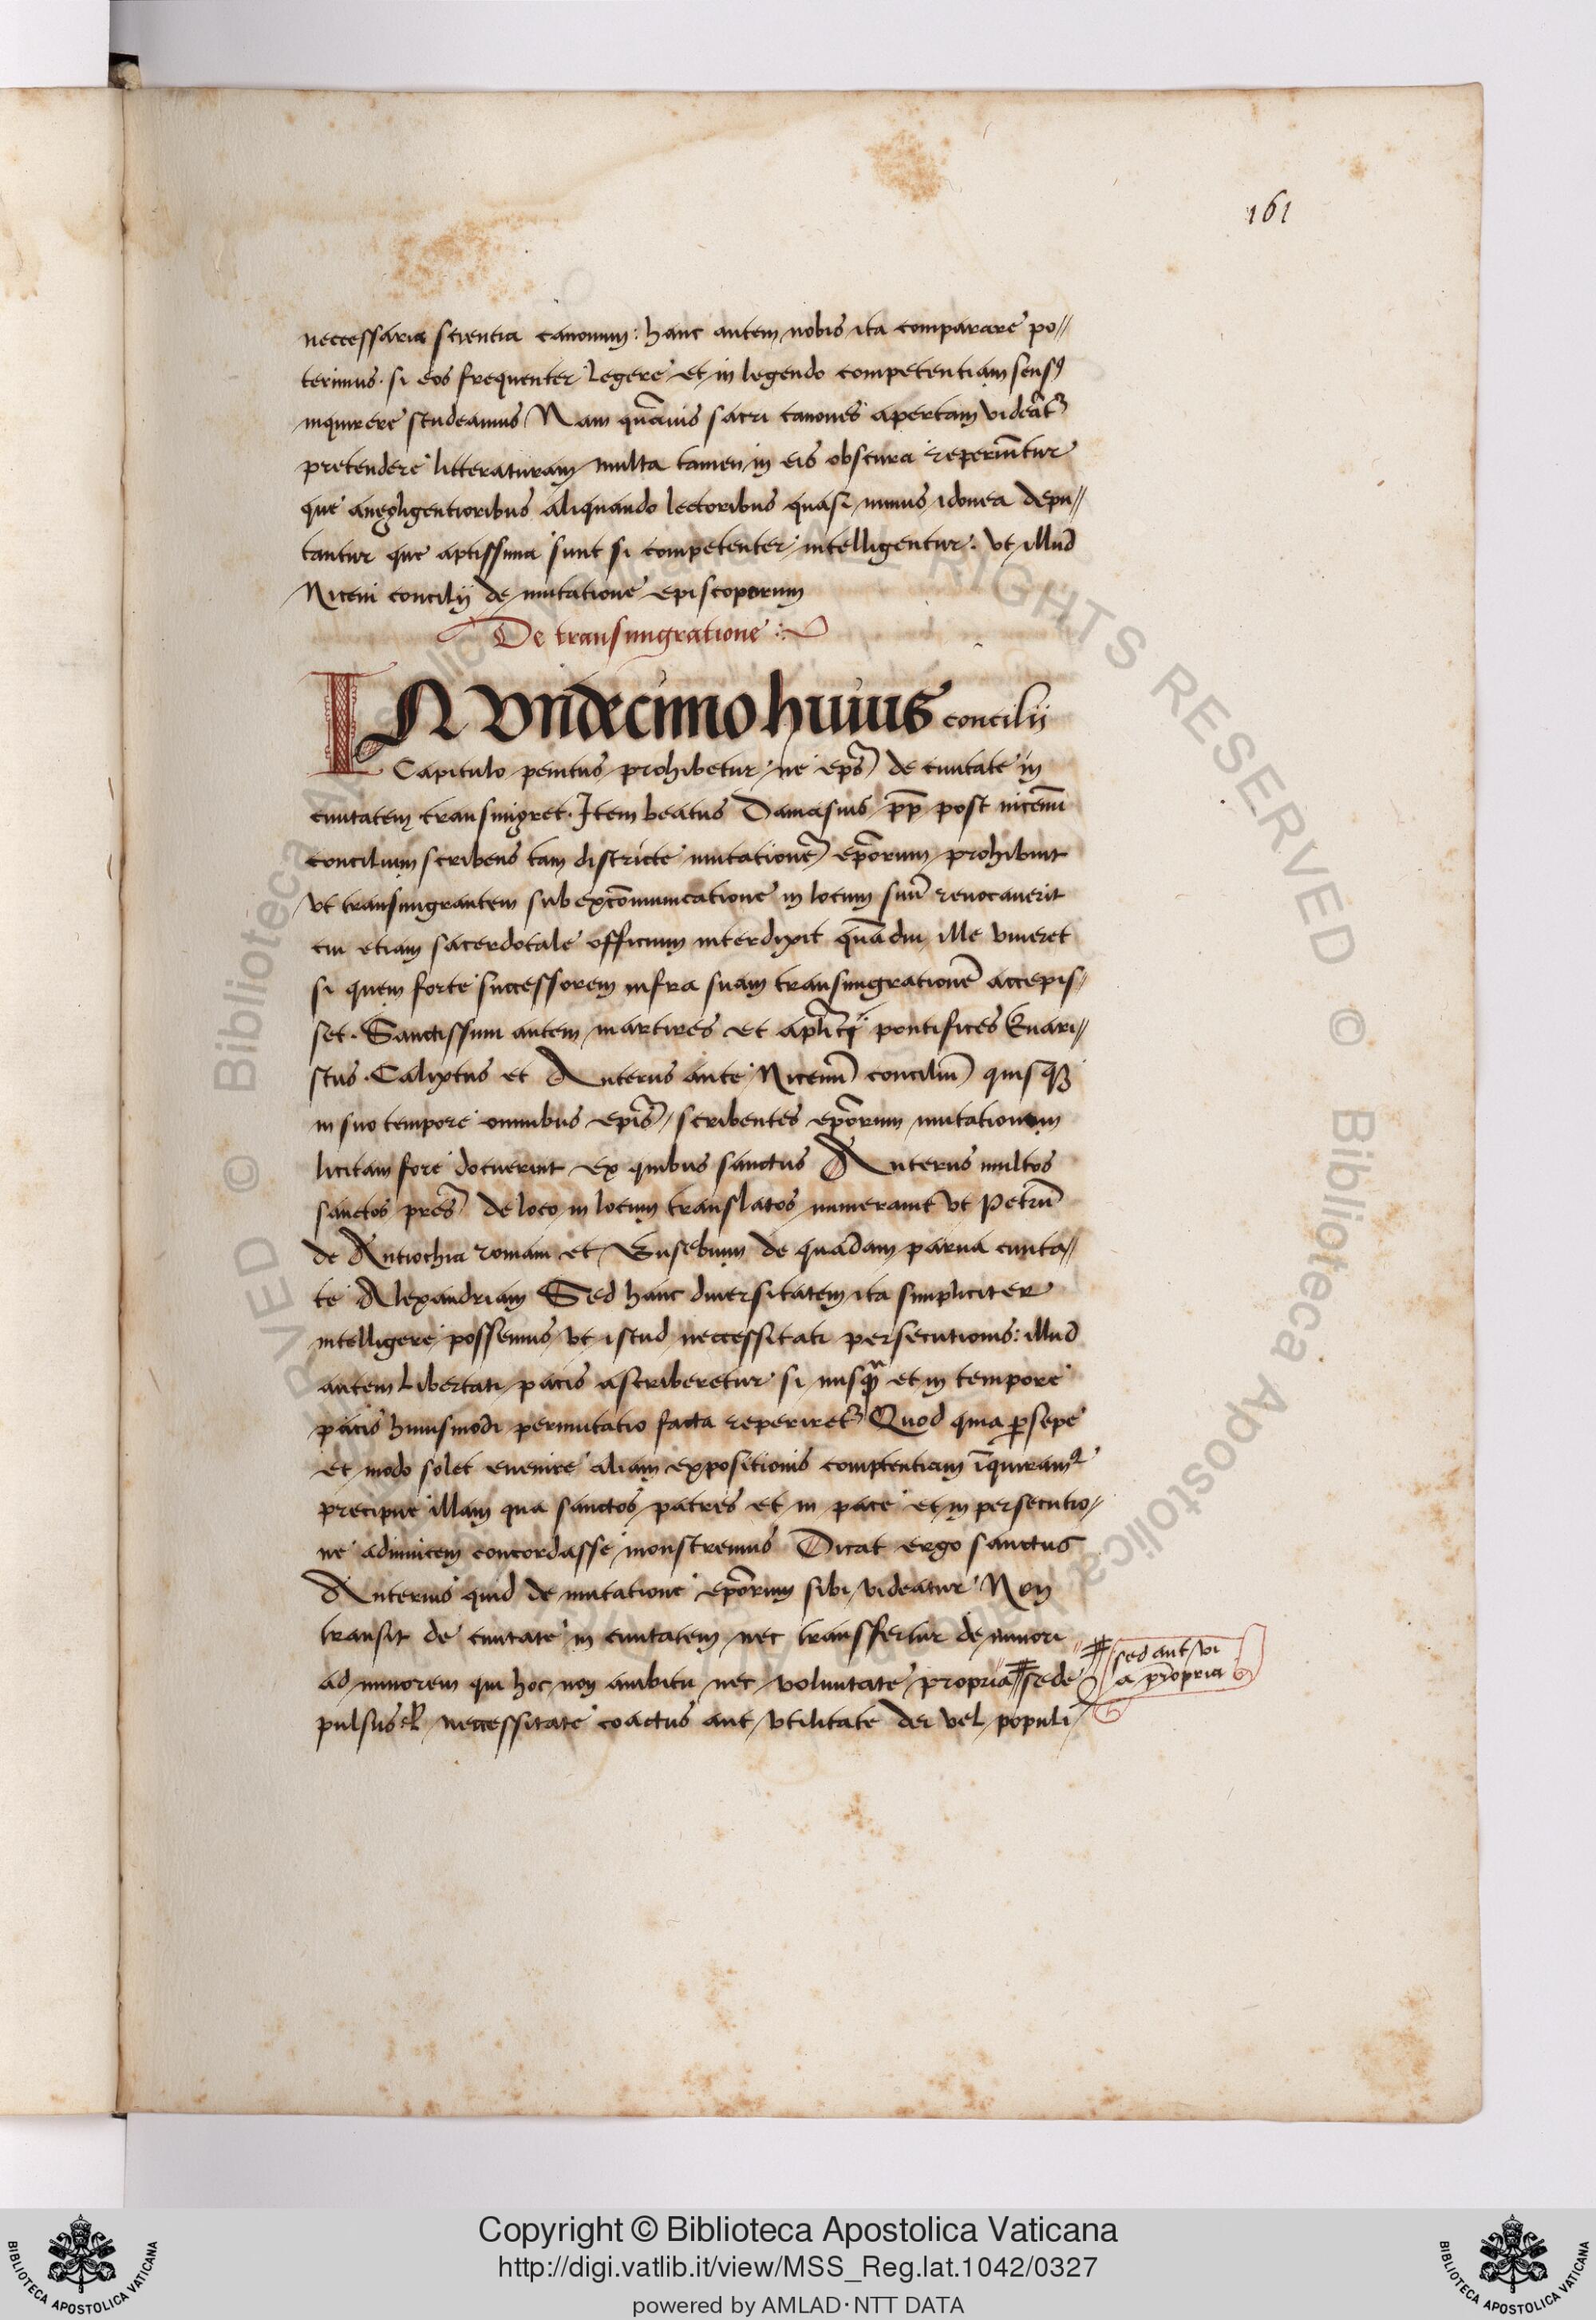 161
neccessaria scientia canonum: hanc autem nobis ita comparare po//
terimus. si eos frequenter legere et in legendo competentiam sensꝰ
inquirere studeamus Nam quãuis sacri canones apertam videãt᷑
pretendere litteraturam multa tamen in eis obscura reperiũtur
que anegligentioribus aliquando lectoribus quasi minus idonea depu//
tantur que aptissima sunt si competenter intelligentur. vt illud
Niceni concilij de mutatione episcoporum
De transmigratione
IN Vndecimo huius concilij
Capitulo penitus prohibetur ne ep̃s de ciuitate in
ciuitatem transmigret. Item beatus Damasus pp̃ post nicenũ
concilium scribens tam districte mutationẽ ep̃orum prohibuit
vt transmigrantem sub excõmunicatione in locum suũ reuocauerit
cui etiam sacerdotale officium interdixit quãdiu ille viueret
si quem forte successorem infra suam transmigrationẽ accepis/
set. Sanctissimi autem martires et ap̃lici pontifices Euari//
stus. Calixtus et Anterus ante Nicenũ conciliũ quisqꝫ
in suo tempore omnibus ep̃is scribentes ep̃orum mutationem
licitam fore docuerint ex quibus sanctus Anterus multos
sanctos pr̃es de loco in locum translatos numerauit vt Petrũ
de Antiochia romam et Eusebium de quadam parua ciuita//
te Alexandriam Sed hanc diuersitatem ita simpliciter
intelligere possemus vt istud neccessitati persecutionis: illud
autem libertati pacis ascriberetur si nusqᷓ et in tempore
pacis huiusmodi permutatio facta reperiret᷑ Quod quia ꝑsepe
et modo solet euenire aliam expositionis comptentiam ĩquiramꝰ
precipue illam qua sanctos patres et in pace et in persecutio/
ne adinuicem concordasse monstremus Dicat ergo sanctus
Anterius quid de mutatione ep̃orum sibi videatur Non
transit de ciuitate in ciuitatem nec transfertur de minori
ad minorem qui hoc non ambitu nec voluntate propria sede
sed aut vi
a p̃ropria
pulsus neccessitate coactus aut vtilitate dei vel populi
Copyright © Biblioteca Apostolica Vaticana
http://digi.vatlib.it/view/MSS_Reg.lat.1042/0327
powered by AMLAD·NTT DATA
BIBLIOTECA APOSTOLICA VATICANA
BIBLIOTECA APOSTOLICA VATICANA